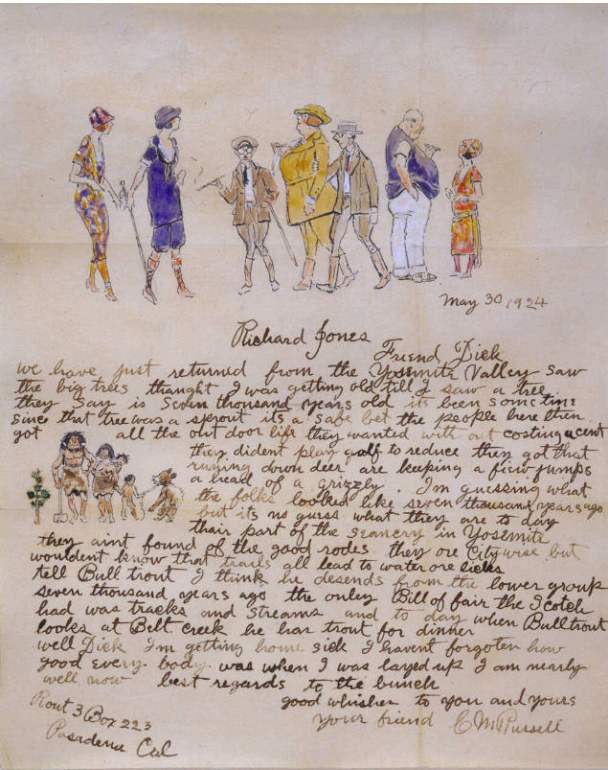 May 30 1924
Richard Jones
Friend Dick
we have just returned from the Yosmite Valley saw
the big trees thought I was getting old till I saw a tree
they say is seven thousand years old its been some time
since that tree was a sprout its a safe bet the people here then
got all the out door life they wanted with out costing a cent
they dident play golf to reduce they got that
runing down deer are keeping a fiew jumps
a head of a grizzly. Im guessing what
the folks looked like seven thousand years ago
but its no guess what they are to day
thair part of the scenery in Yosmite
they aint found of the good rodes they are City wise but
wouldent know that trails all lead to water ore licks
tell Bull trout I think he desends from the lower group
seven thousand years ago the onley Bill of fair the Scotch
had was tracks and streams and to day when Bull trout
looks at Belt creek he has trout for dinner
well Dick Im getting home sick I havent forgoten how
good every body was when I was layed up I am nearly
well now best regards to the bunch
good whishes to you and yours
your friend C M Russell
Rout 3 Box 223
Pasadena Cal